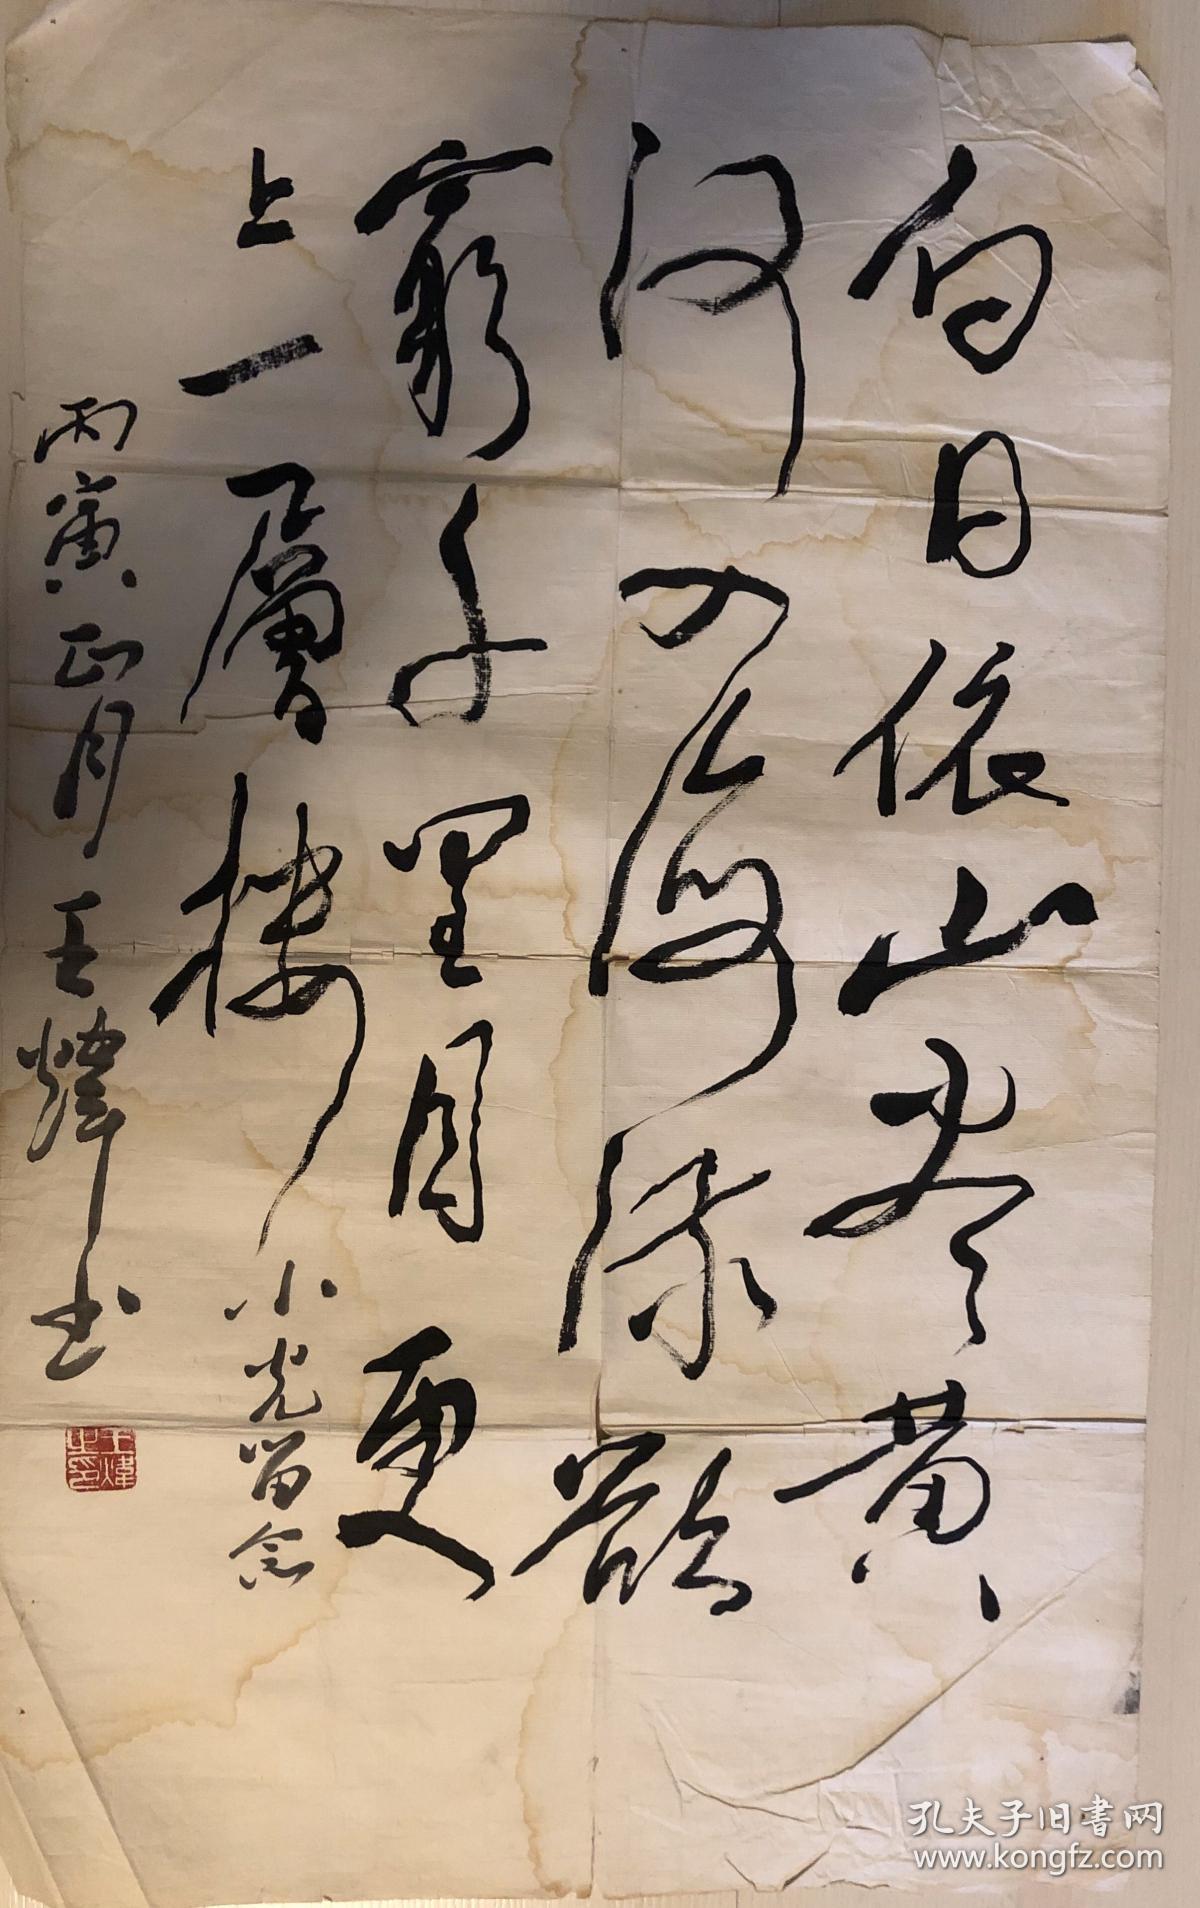 白日依山尽黄
河入海流欲
窮千里目更
上一層樓
小光留念
丙寅正月王煒书
王煒之印
孔夫子旧书网
www.kongfz.com